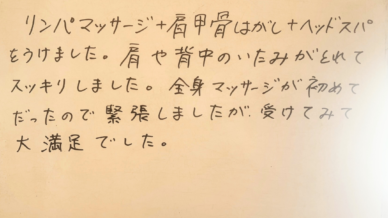 リンパマッサージ+肩甲骨はがし+ヘッドスパ
をうけました。肩や背中のいたみがとれて
スッキリしました。全身マッサージが初めて
だったので緊張しましたが、受けてみて
大満足でした。